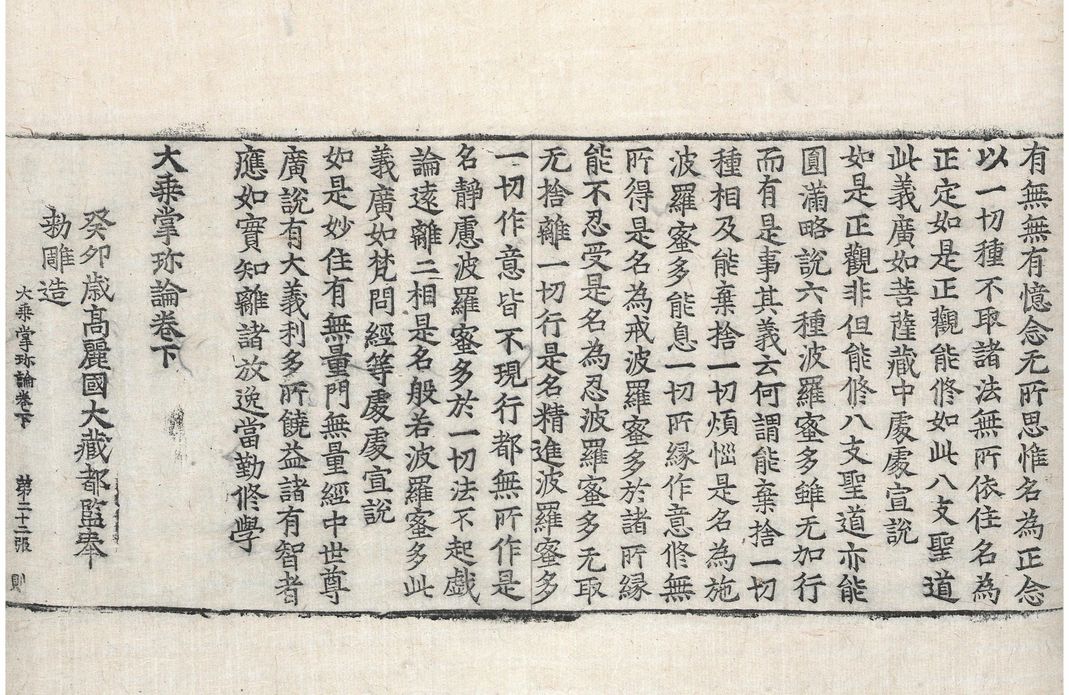 有無無有憶念无所思惟名為正念
以一切種不取諸法無所依住名為
正定如是正觀能修如此八支聖道
此義廣如菩薩藏中處處宣說
如是正觀非但能修八支聖道亦能
圓滿略說六種波羅蜜多雖无加行
而有是事其義云何謂能棄捨一切
種相及能棄捨一切煩惱是名為施
波羅蜜多能息一切所緣作意修無
所得是名為戒波羅蜜多於諸所緣
能不忍受是名為忍波羅蜜多无取
无捨離一切行是名精進波羅蜜多
一切作意皆不現行都無所作是
名靜慮波羅蜜多於一切法不起戲
論遠離二相是名般若波羅蜜多此
義廣如梵問經等處處宣說
如是妙住有無量門無量經中世尊
廣說有大義利多所饒益諸有智者
應如實知離諸放逸當勤修學
大乘掌珎論卷下
癸卯歲高麗國大藏都監奉
勑雕造
大乘掌珎論卷下 第二十二張 則